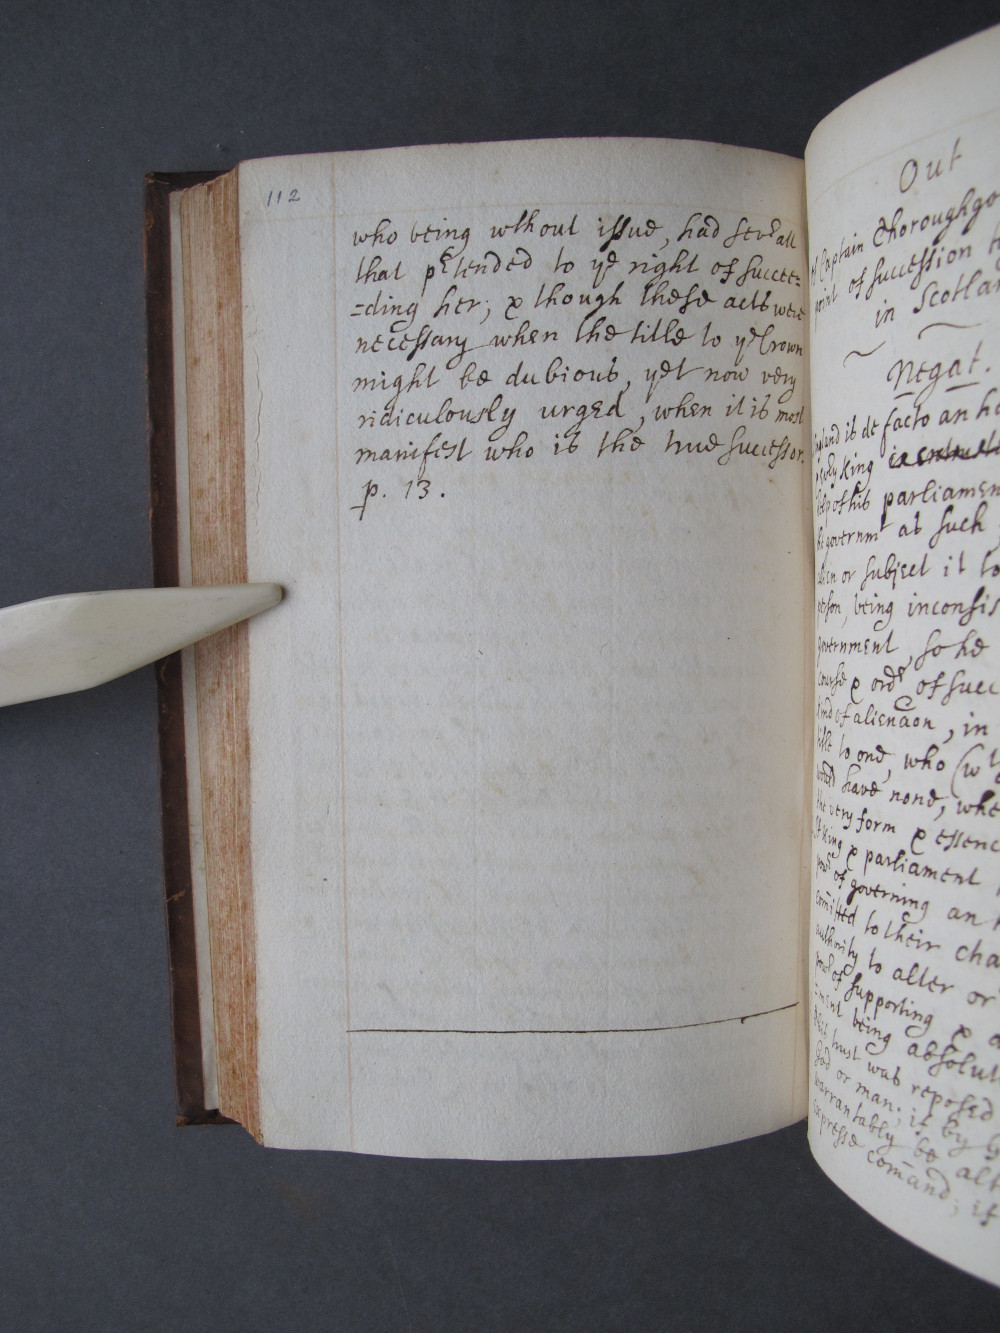 112
who being wthout issue, had severall
that prtended to ye right of succee=
=ding her; & though these acts were
necessary when the title to ye Crown
might be dubious, yet now very
ridiculously urged, when it is most
manifest who is the true successor.
p. 13.
Out
Captain Thoroughgo
point of succession
in Scotlan
Negat.
is de facto an
King
of his parliamen
governmt as such,
or subject it to
person, being inconsis
government, so he
course & ordr of succ
kind of alienaon, in
title to one, who (wt
have none, whe
the very form & essenc
King & parliament
powr of governing an
comitted to their cha
authority to alter or
of supporting &
=ment being absolut
trust was reposed
God or man; if by G
warrantably be alt
expresse comand; if